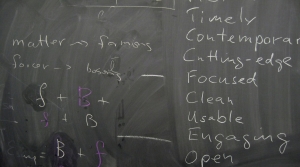 Timely
Contemporar
Cutting-edge
Focused
Clean
Usable
Engaging
Open
matter → famous
favor →
f + B +
+ B
B + f